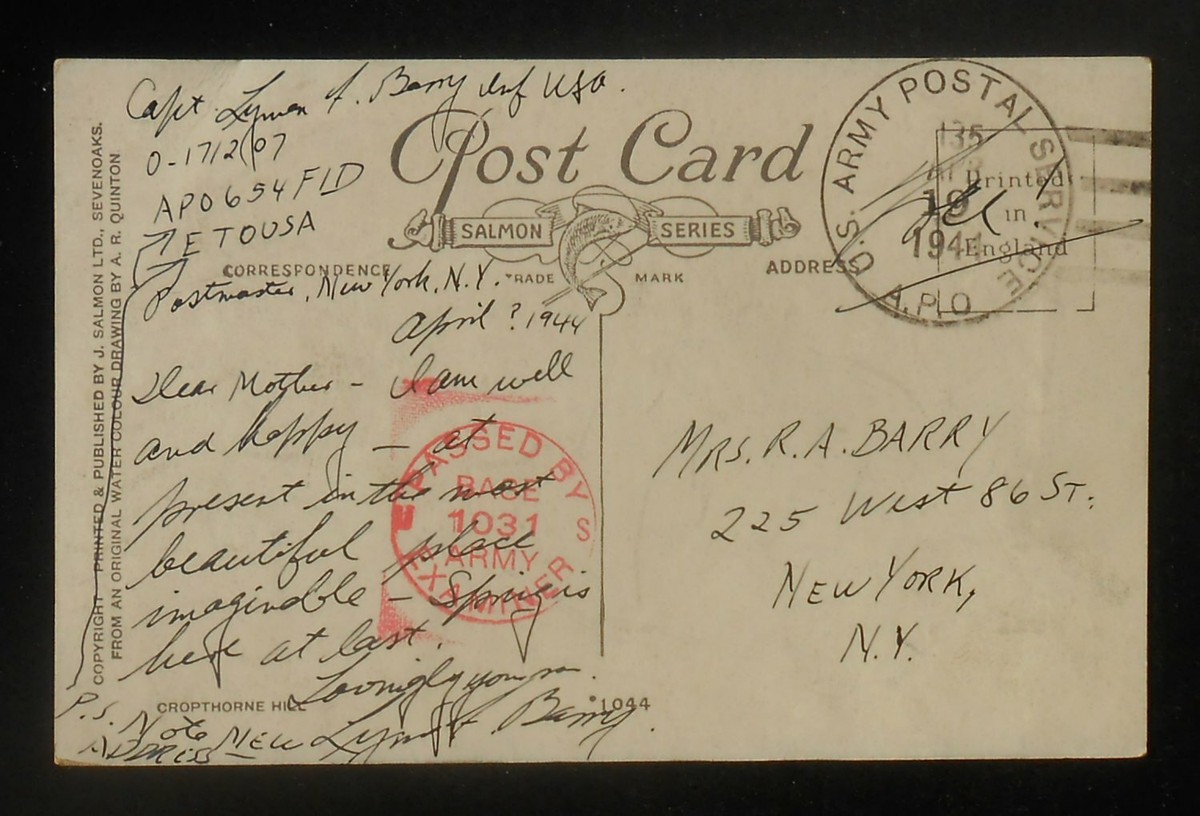 Capt. Lyman F. Barry Inf USA.
O-1712107
APO 654 FID
ETOUSA
Postmaster, New York, N.Y.
April ? 1944
Dear Mother - I am well
and happy - at
present in the most
beautiful place
imaginable - Spring is
here at last.
Lovingly yours.
Lyman F. Barry.
P.S. Note
New
Address
Post Card
SALMON SERIES
CORRESPONDENCE
TRADE MARK
ADDRESS
COPYRIGHT PRINTED & PUBLISHED BY J. SALMON LTD., SEVENOAKS.
FROM AN ORIGINAL WATER COLOUR DRAWING BY A. R. QUINTON
CROPTHORNE HILL
*1044
PASSED BY
BASE
1031
ARMY
EXAMINER
U.S. ARMY POSTAL SERVICE
A.P.O.
135
APR
19
1944
Printed
in
England
MRS. R. A. BARRY
225 West 86 St.
NEW YORK,
N.Y.